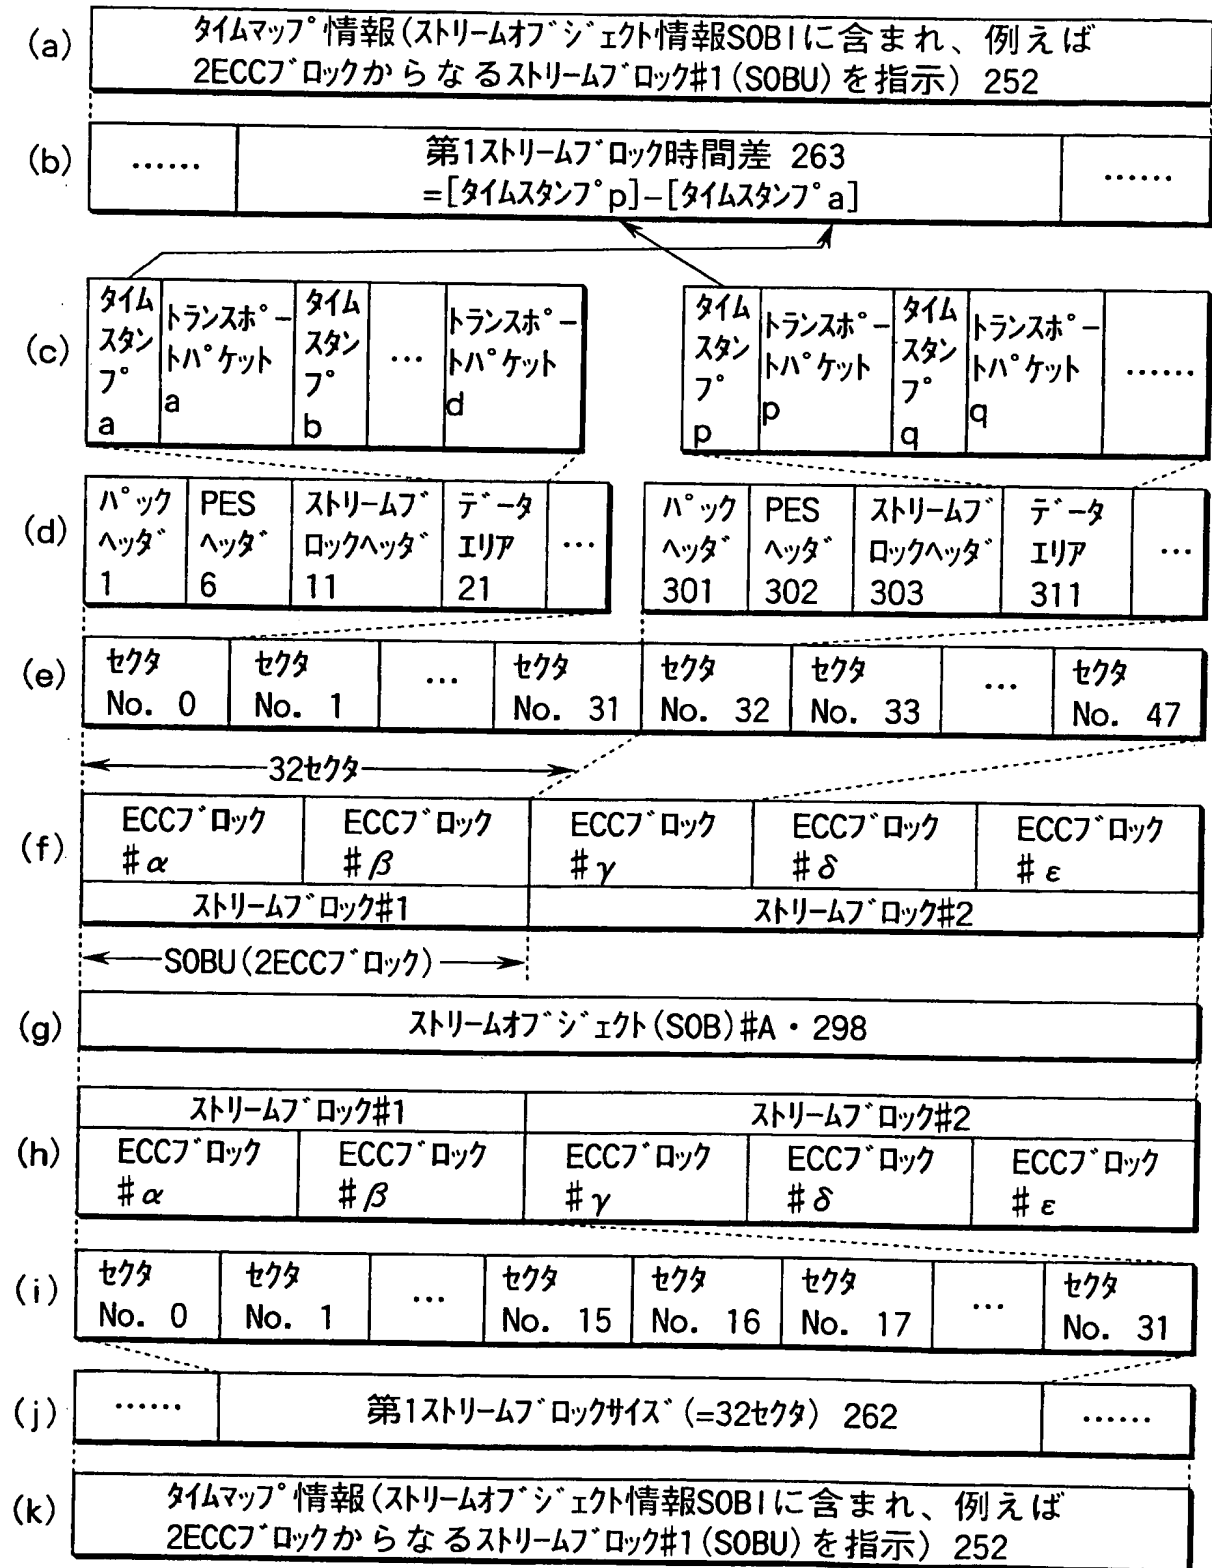 (a)
タイムマップ情報(ストリームオブジェクト情報SOBIに含まれ、例えば
2ECCブロックからなるストリームブロック#1(SOBU)を指示) 252
(b)
……
第1ストリームブロック時間差 263
=[タイムスタンプp]-[タイムスタンプa]
……
(c)
タイム
スタン
プ
a
トランスポー
トパケット
a
タイム
スタン
プ
b
…
トランスポー
トパケット
d
タイム
スタン
プ
p
トランスポー
トパケット
p
タイム
スタン
プ
q
トランスポー
トパケット
q
……
(d)
パック
ヘッダ
1
PES
ヘッダ
6
ストリームブ
ロックヘッダ
11
データ
エリア
21
…
パック
ヘッダ
301
PES
ヘッダ
302
ストリームブ
ロックヘッダ
303
データ
エリア
311
…
(e)
セクタ
No. 0
セクタ
No. 1
…
セクタ
No. 31
セクタ
No. 32
セクタ
No. 33
…
セクタ
No. 47
32セクタ
(f)
ECCブロック
#α
ECCブロック
#β
ECCブロック
#γ
ECCブロック
#δ
ECCブロック
#ε
ストリームブロック#1
ストリームブロック#2
SOBU(2ECCブロック)
(g)
ストリームオブジェクト(SOB)#A・298
(h)
ストリームブロック#1
ストリームブロック#2
ECCブロック
#α
ECCブロック
#β
ECCブロック
#γ
ECCブロック
#δ
ECCブロック
#ε
(i)
セクタ
No. 0
セクタ
No. 1
…
セクタ
No. 15
セクタ
No. 16
セクタ
No. 17
…
セクタ
No. 31
(j)
……
第1ストリームブロックサイズ(=32セクタ) 262
……
(k)
タイムマップ情報(ストリームオブジェクト情報SOBIに含まれ、例えば
2ECCブロックからなるストリームブロック#1(SOBU)を指示) 252